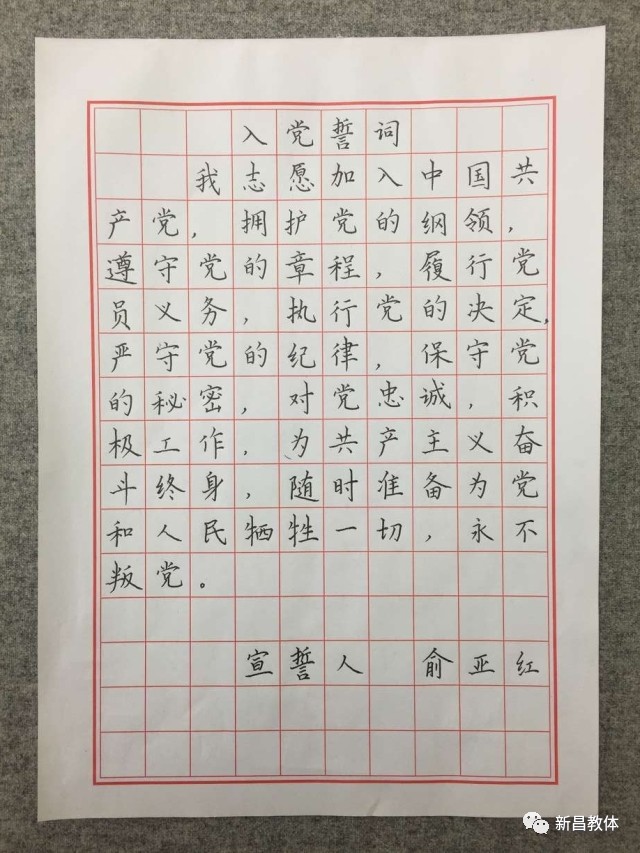 入党誓词
我志愿加入中国共
产党,拥护党的纲领,
遵守党的章程,履行党
员义务,执行党的决定,
严守党的纪律,保守党
的秘密,对党忠诚,积
极工作,为共产主义奋
斗终身,随时准备为党
和人民牺牲一切,永不
叛党。
宣誓人 俞亚红
新昌教体